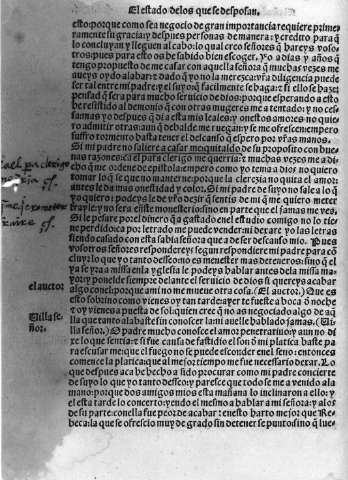 El estado delos que se desposan.
esto: porque como sea negocio de gran importancia requiere prime-
ramente su gracia: y despues personas de manera: y credito para q̃
lo concluyan y lleguen al cabo: lo qual creo señores q̃ hareys voso-
tros: pues para esto os he sabido bien escoger. Yo a dias y años q̃
tengo proposito de me casar con aquella señora q̃ muchas vezes me
aueys oydo alabar: t̃ dado q̃ yo no la merezca: v̄ra diligencia puede
ser tal entre mi padre: y el suyo: q̃ facilmente se haga: t̃ si ello se haze
pensad q̃ sera para mucho seruicio de dios: porque esperando a esto
he resistido al demonio q̃ con otras mugeres me a tentado: y no ce-
samas yo despues q̃ di a esta mis leales: y onestos amores: no qui-
so admitir otras: aun q̃ hal de me ruegan y se me ofrescen: empero
suffro demonto hasta tener el descanso q̃ espero por v̄ras manos.
Si mi padre no saliere a casar me quitaldo de su proposito con bue-
nas razones: ca el para clerigo me querria: t̃ muchas vezes me a di-
cho que me ordene de epistola: empero como yo tema a dios no quiero
tomar lo q̃ se que no manterne: porque la clerezia no quita el amor:
antes le da mas onestidad y color. Si mi padre de suyo no sale a lo q̃
yo quiero: podeys le de v̄ro dezir q̃ sentis de mi q̃ me quiero meter
frayle: y no sera en este monesterio: sino en parte que el jamas me vea.
Si le pesare por el dinero q̃ a gastado en el studio conmigo no lo tie-
ne perdido: ca por letrado me puede vender: ni dexare yo las letras
siendo casado con esta sabia señora que a de ser descanso mio. Pues
vosotros señores respondereys segun respondiere mi padre para cō
cluyr lo que yo tanto desseo: no es menester mas deteneros: sino q̃ el
ya se yra a missa en la yglesia le podeys hablar antes de la missa ma-
yor: y ponelde siempre delante el seruicio de dios si quereys acabar
algo con el: porque ami no me mueue otra cosa. (El auctor.) Que es
esto sobrino como vienes oy tan tarde: ayer te fueste a boca d̃ noche
t̃ oy vienes a puesta de sol: quien cree q̃ no as negociado algo de aq̃
lla que tanto alabaste sin conoscer la ni auelle hablado jamas. (Ui-
llaseñor.) O padre mucho conosce el amor penetratiuo: y aun no di-
xe lo que sentia: t̃ si fue causa de fastidio el son d̃ mi platica basta pa-
ra escusar me: que el fuego no se puede esconder enel seno: entonces
comence la platica: que al mejor tiempo me fue necessario dexar. Lo
que despues aca he hecho a sido procurar como mi padre concierte
de suyo lo que yo tanto desseo: y paresce que todo se me a venido a la
mano: porque dos amigos mios esta mañana lo inclinaron a ello: y
el esta tarde lo concerto: yendo el mesmo a hablar a mi señora: y a los
de su parte: con ella fue peor de acabar: t̃ en esto harto mejor que Re-
beca: la que se ofrescio muy de grado sin detener se punto: sino q̃ lue-
el auctor
Uillase
ñor.